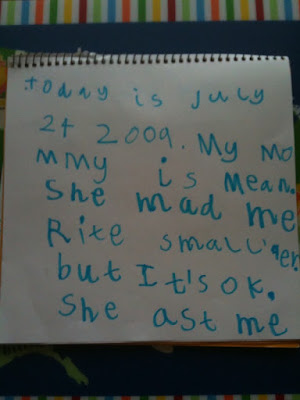 today is july
2t 2009. My Mo
mmy is mean.
She mad me
Rite small'ger
but It's ok.
She ast me